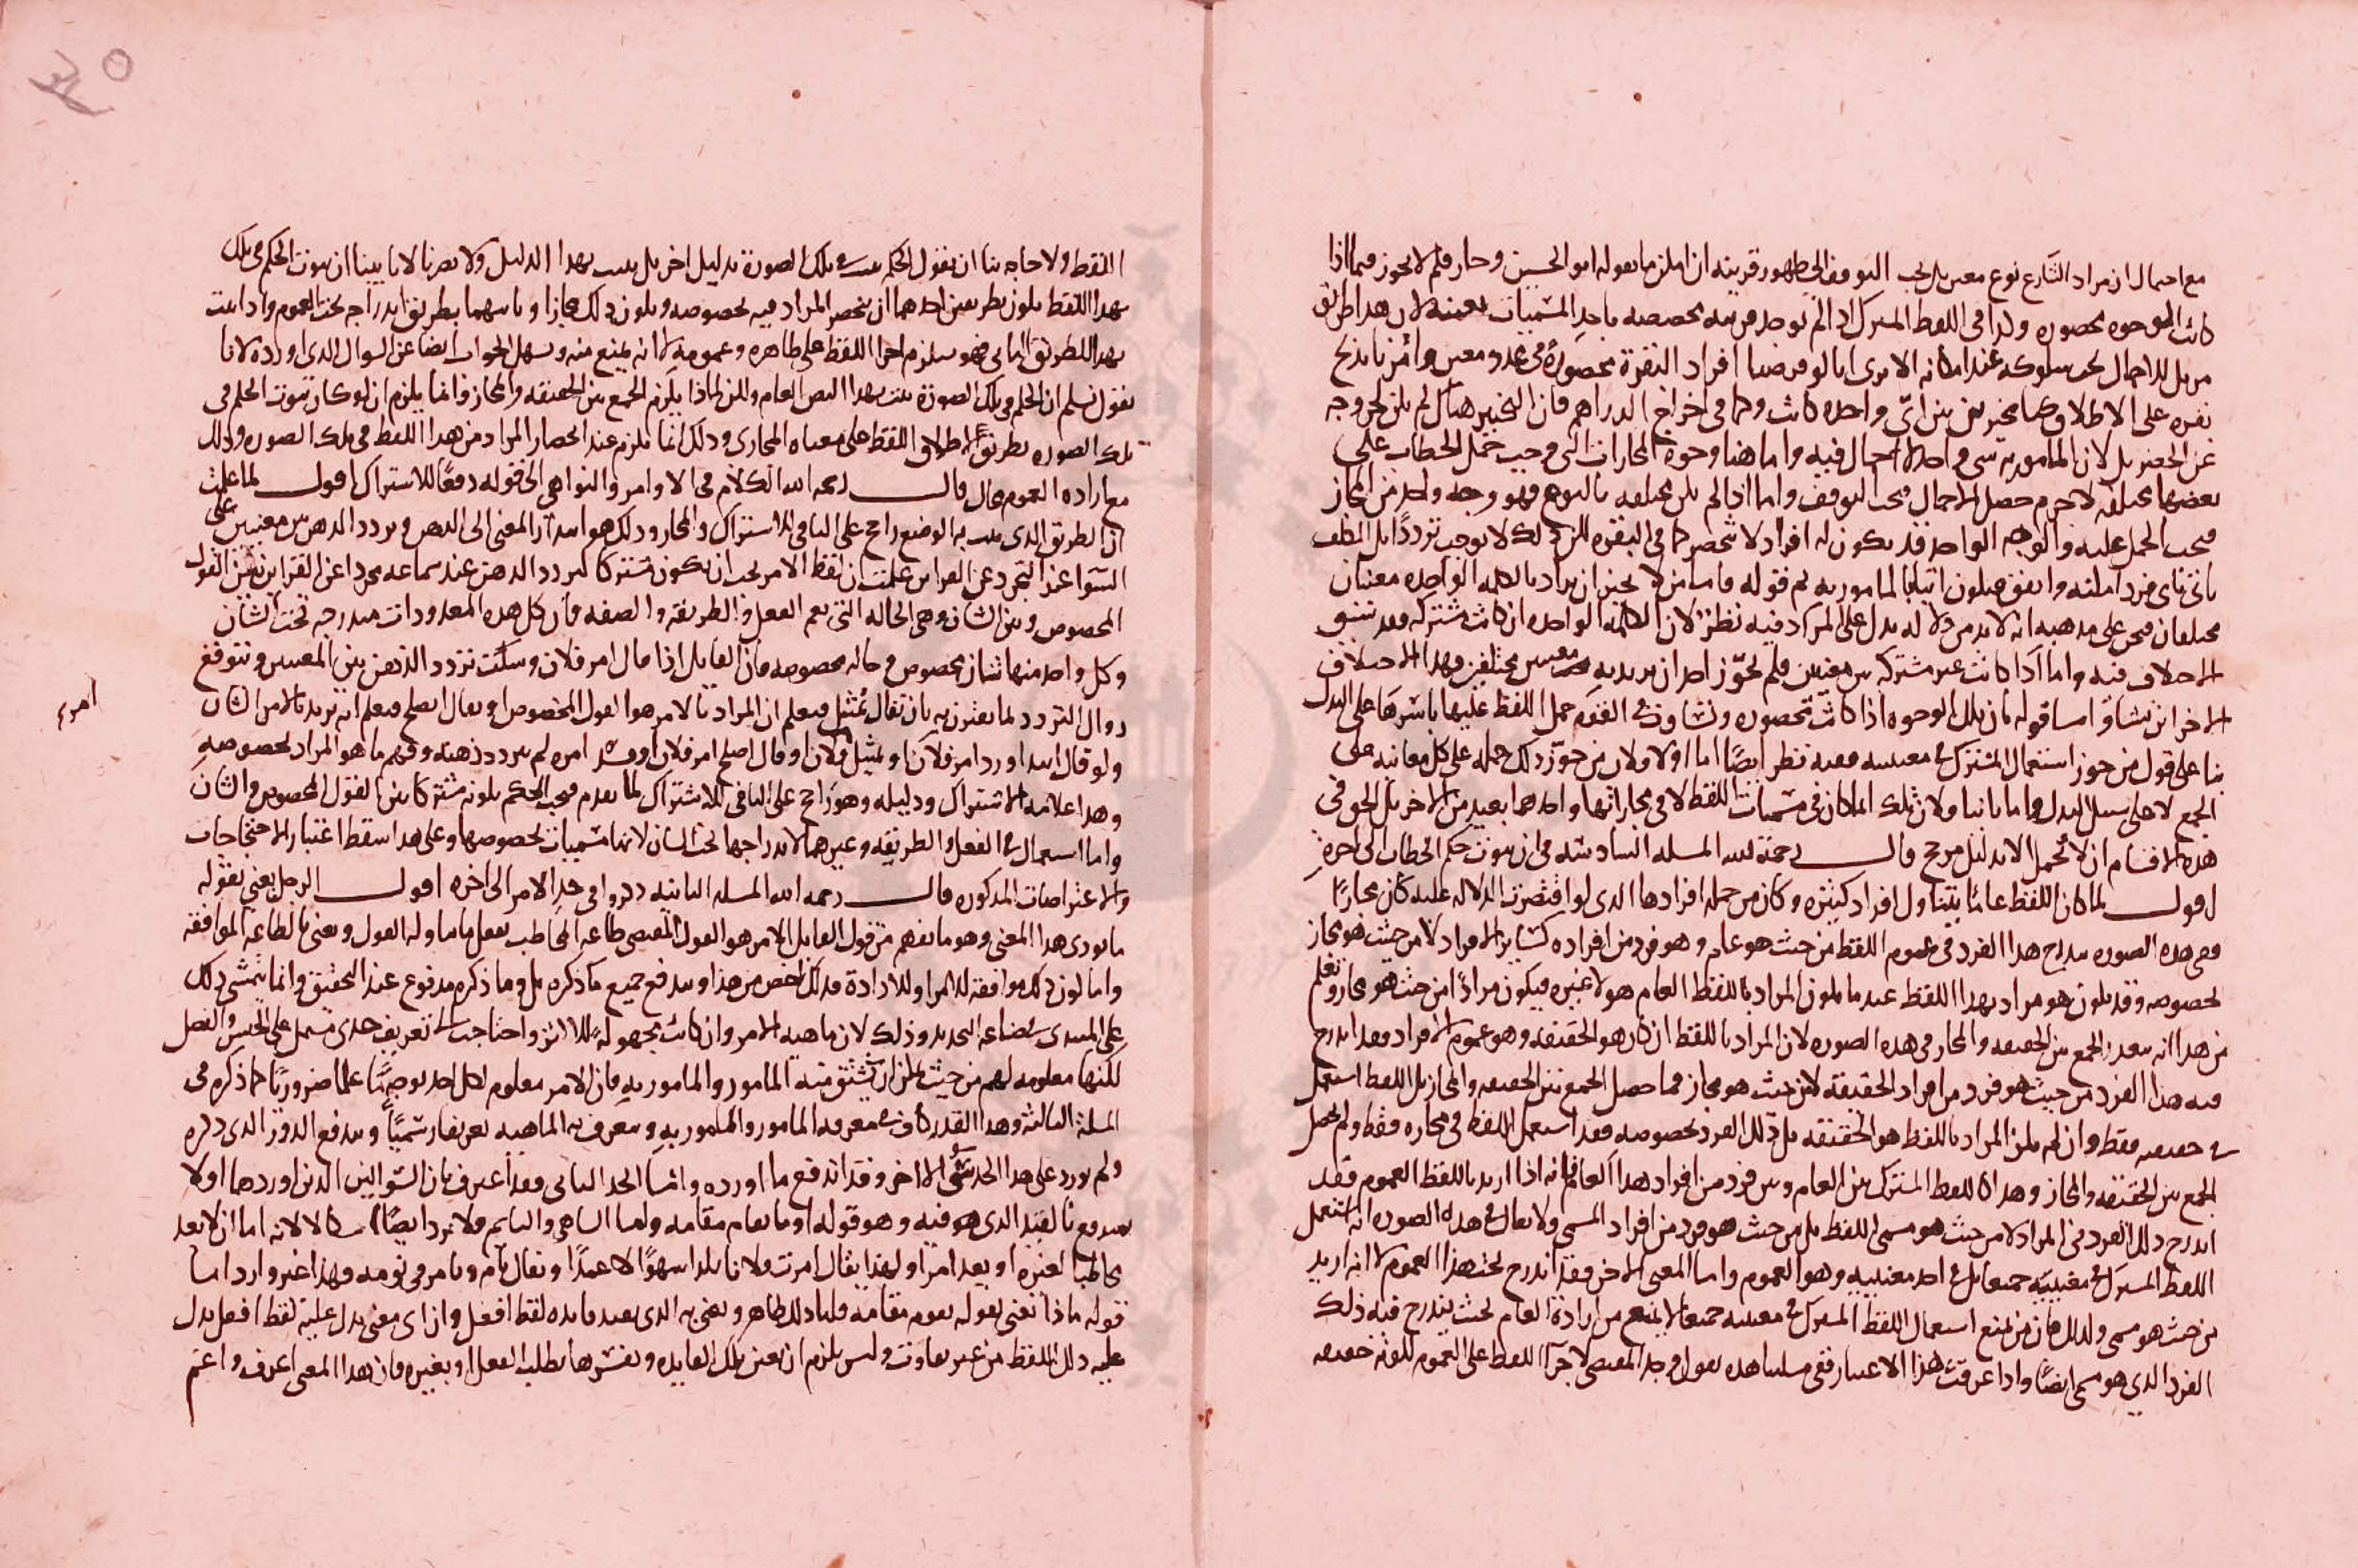 مع احتمال ان مراد الشارع نوع معين بل يجب التوقف الى ظهور قرينه ان لم يلزم ما يقوله ابو الحسين وجاز فلم لا يجوز فيما اذا
كانت الوجوه محصوره ولذا في اللفظ المشترك اذا لم توجد قرينه مخصصه باحد المسميات بعينه لان هذا طريق
مزيل للاجمال يجب سلوكه عند امكانه الا يرى انا لو فرضنا افراد البقرة محصورة في عدد معين وامرنا بذبح
بقره على الاطلاق كنا مخيرين بين اي واحده كانت وكما في اخراج الدراهم فان التخيير هناك لم يكن لخروجه
عن الحصر بل لان المامور به شي واحد لا اجمال فيه واما هنا وجوه المجازات التي وجب حمل الخطاب على
بعضها مختلفه لا جرم حصل الاجمال فيجب التوقف واما اذا لم يكن مختلفه بالنوع فهو وجه واحد من المجاز
فيجب الحمل عليه والوجه الواحد قد يكون له افراد لا تنحصر كما في البقره لكن ذلك لا يوجب ترددا بل المكلف
ياتي باي فرد امكنه واتفق فيكون اتيانا بالمامور به ثم قوله فاما من لا يجيز ان يراد بالكلمه الواحده معنيان
مختلفان فيجي على مذهبه انه لابد من دلاله يدل على المراد فيه نظر لان الكلمه الواحده ان كانت مشتركه فقد سبق
الاختلاف فيه واما اذا كانت غير مشتركه بين معنيين فلم يجوز احد ان يريد به معنيين مختلفين فهذا الاختلاف
الاخر اين نشا واما قوله بان تلك الوجوه اذا كانت محصوره وتساوت في الفقه حمل اللفظ عليها باسرها على البدل
بنا على قول من جوز استعمال المشترك في معنييه ففيه نظر ايضا اما اولا فلان من جوز ذلك حمله على كل معانيه على
الجمع لا على سبيل البدل واما ثانيا فلان تلك المكان في مسميات اللفظ لا في مجازاتها واحدهما بعيد من الاخر بل الحق في
هذه الاقسام ان لا يحمل الا بدليل مرجح قال رحمة الله المسله السادسه في ان ثبوت حكم الخطاب الى اخره
اقول لما كان اللفظ عاما يتناول افراد كثيره وكان من جمله افرادها الذي لو اقتصرت الدلاله عليه كان مجازا
وفي هذه الصوره يندرج هذا الفرد في عموم اللفظ من حيث هو عام وهو فرد من افراده كساير الافراد لا من حيث هو مجاز
لخصوصه وقد يكون هو مراد بهذا اللفظ عند ما يكون المراد باللفظ العام هو لا غيره فيكون مرادا من حيث هو مجاز ويعلم
من هذا انه يتعدر الجمع بين الحقيقه والمجاز في هذه الصوره لان المراد باللفظ ان كان هو الحقيقه وهو عموم الافراد فقد اندرج
فيه هذا الفرد من حيث هو فرد من افراد الحقيقة لا من حيث هو مجاز فما حصل الجمع بين الحقيقه والمجاز بل اللفظ استعمل
في حقيقته فقط وان لم يكن المراد باللفظ هو الحقيقه بل ذلك الفرد بخصوصه فقد استعمل اللفظ في مجازه فقط ولم يحصل
الجمع بين الحقيقه والمجاز وهذا كاللفظ المشترك بين العام وبين فرد من افراد هذا العام فانه اذا اريد باللفظ العموم فقد
اندرج ذلك الفرد في المراد لا من حيث هو مسمى اللفظ بل من حيث هو فرد من افراد المسمى ولا يقال في هذه الصوره انه استعمل
اللفظ المشترك في معنييه جميعا بل في احد معنييه وهو العموم واما المعنى الاخر فقد اندرج تحت هذا العموم لا انه اريد
من حيث هو مسمى ولذلك فان من يمنع استعمال اللفظ المشترك في معنييه جميعا لا يمنع من ارادة العام بحيث يندرج فيه ذلك
الفرد الذي هو مسمى ايضا واذا عرفت هذا الاعتبار ففي مسلتنا هذه نقول وجد المقتضي لاجرآ اللفظ على العموم لكونه حقيقه
اللفظ ولا حاجه بنا ان نقول الحكم يثبت في تلك الصورة بدليل اخر بل يثبت بهذا الدليل ولا يضرنا لانا بينا ان ثبوت الحكم في تلك
بهذا اللفظ يكون بطريقين احدهما ان ينحصر المراد فيه بخصوصه ويكون ذلك مجازا وثانيهما بطريق اندراجه تحت العموم واذا ثبت
بهذا الطريق الثاني فهو يستلزم اجرا اللفظ على ظاهره وعمومه لا انه يمنع منه وسهل الجواب ايضا عن السوال الذي اورده لانا
نقول نسلم ان الحكم في تلك الصورة يثبت بهذا النص العام ولكن لماذا يلزم الجمع بين الحقيقه والمجاز وانما يلزم ان لو كان ثبوت الحكم في
تلك الصوره بطريق اطلاق اللفظ على معناه المجازي وذلك انما يلزم عند انحصار المراد من هذا اللفظ في تلك الصوره وذلك
مع اراده العموم محال قال رحمه الله الكلام في الاوامر والنواهي الى قوله دفعا للاشتراك اقول لما علمت
ان الطريق الذي يثبت به الوضع راجح على النافي للاشتراك والمجاز وذلك هو ابتدار المعنى الى الذهن وتردد الذهن بين معنيين على
السوا عند التجرد عن القراين علمت ان لفظ الامر يجب ان يكون مشتركا لتردد الذهن عند سماعه مجردا عن القراين بين القول
المخصوص وبين الشان وهي الحاله التي تعم الفعل والطريقه والصفه فان كل هذه المعدودات مندرجه تحت الشان
وكل واحد منها شان مخصوص وحاله مخصوصه فان القايل اذا قال امر فلان وسكت تردد الذهن بين المعنيين ويتوقف
زوال التردد لما يقترن به بان يقال يمتثل فيعلم ان المراد بالامر هو القول المخصوص او يقال يصلح فيعلم انه يريد بالامر الشان
ولو قال ابتدا ورد امر فلان او يمتثل فلان او قال اصلح امر فلان او فسد امره لم يتردد ذهنه وفهم ما هو المراد بخصوصه
امره
وهذا علامه الاشتراك ودليله وهو راجح على النافي للاشتراك لما تقدم فيجب الحكم بكونه مشتركا بين القول المخصوص والشان
واما استعمال في الفعل والطريقه وغيرهما لاندراجها تحت الشان لا انها مسميات بخصوصها وعلى هذا سقط اعتبار الاحتجاجات
والاعتراضات المذكوره قال رحمه الله المسله الثانيه ذكروا في حد الامر الى اخره اقول الرجل يعني بقوله
ما يودي هذا المعنى وهو ما يفهم من قول القايل الامر هو القول المقتضي طاعه المخاطب بفعل ما تناوله القول ويعني بالطاعه الموافقه
واما كون ذلك موافقه للامر او للارادة فذلك اخص من هذا ويندفع جميع ما ذكره بل وما ذكره مدفوع عند التحقيق وانما يتمشى ذلك
على المبتدي بصناعه التحديد وذلك لان ماهيه الامر وان كانت مجهولة واحتاجت الى تعريف حدي مشتمل على الجنس والفصل
لكنها معلومه لهم من حيث يمكن ان يشتق منه المامور والمامور به فان الامر معلوم لكل احد بوجه ما علما ضروريا كما ذكره في
المسلة الثالثه وهذا القدر كاف في معرفه المامور والمامور به ويتعرف به الماهيه تعريفا رسميا ويندفع الدور الذي ذكره
ولم يورد على هذا الحد شي الاخر وقد اندفع ما اورده وامّا الحد الثاني فقد اعترف بان السوالين الذين اوردهما اولا
يندفع بالقيد الذي هو فيه وهو قوله او ما يقوم مقامه ولما الساهي والنايم فلا يرد ايضا لانه اما ان لا يعد
مخاطبا لغيره او يعد امرا ولهذا يقال امرت فلانا بكذا سهوا لا عمدا ويقال نام ويامر في نومه وهذا غير وارد اما
قوله ماذا نعني بقوله يقوم مقامه قلنا ذلك ظاهر ويعني به الذي يفيد فايده لفظ افعل وان اي معنى يدل عليه لفظ افعل يدل
عليه ذلك اللفظ من غير تفاوت وليس يلزم ان يعين تلك الفايده ويفسرها بطلب الفعل او بغيره فان هذا المعنى اعرف واعم